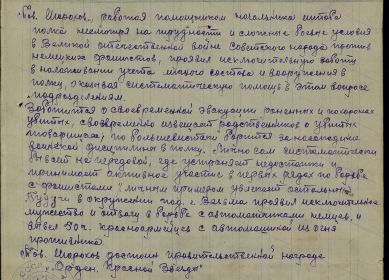 Тов. Широков, работая помощником начальника штаба
полка несмотря на трудности и сложные боевые условия
в Великой отечественной войне Советского народа против
немецких фашистов, проявил исключительную заботу
в налаживании учета личного состава и вооружения в
полку, оказывая систематическую помощь в этом вопросе
подразделениям.
Заботится о своевременной эвакуации раненных и похоронах
убитых, своевременно извещает родственников о убитых
товарищах, по большевистски борется за насаждение
воинской дисциплины в полку. Лично сам систематически
бывает на передовой, где устраняет недостатки и
принимает активное участие в первых рядах по борьбе
с фашистами и личным примером увлекает остальных
Будучи в окружении под г. Вязьма проявил исключительное
мужество и отвагу в борьбе с автоматчиками немцев, и
вывел 50 ч. красноармейцев с автомашиной из огня
противника.
Тов. Широков достоин правительственной награде
"Орден Красной Звезды"